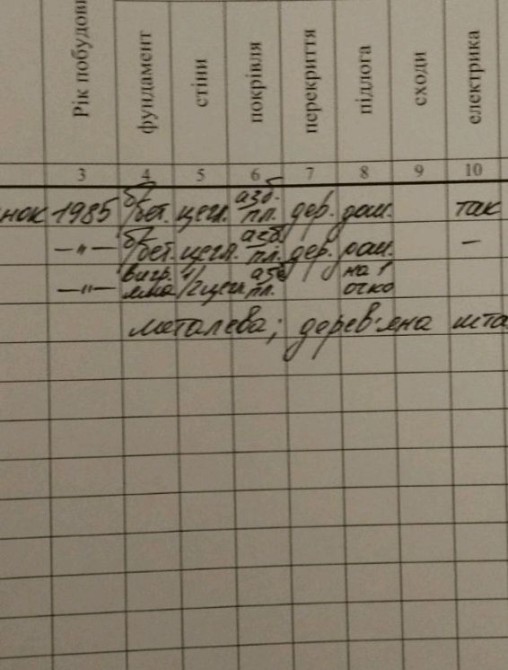 Рік побудови фундамент стіни покрівля перекриття підлога сходи електрика
3 4 5 6 7 8 9 10
нок 1985 б/бет. цегл. азб. пл. дер. дощ. так
—"— б/бет. цегл. азб. пл. дер. —
—"— вигр. яма 1/2 цегл. азб. пл. на 1 очко
металева; дерев'яна шта